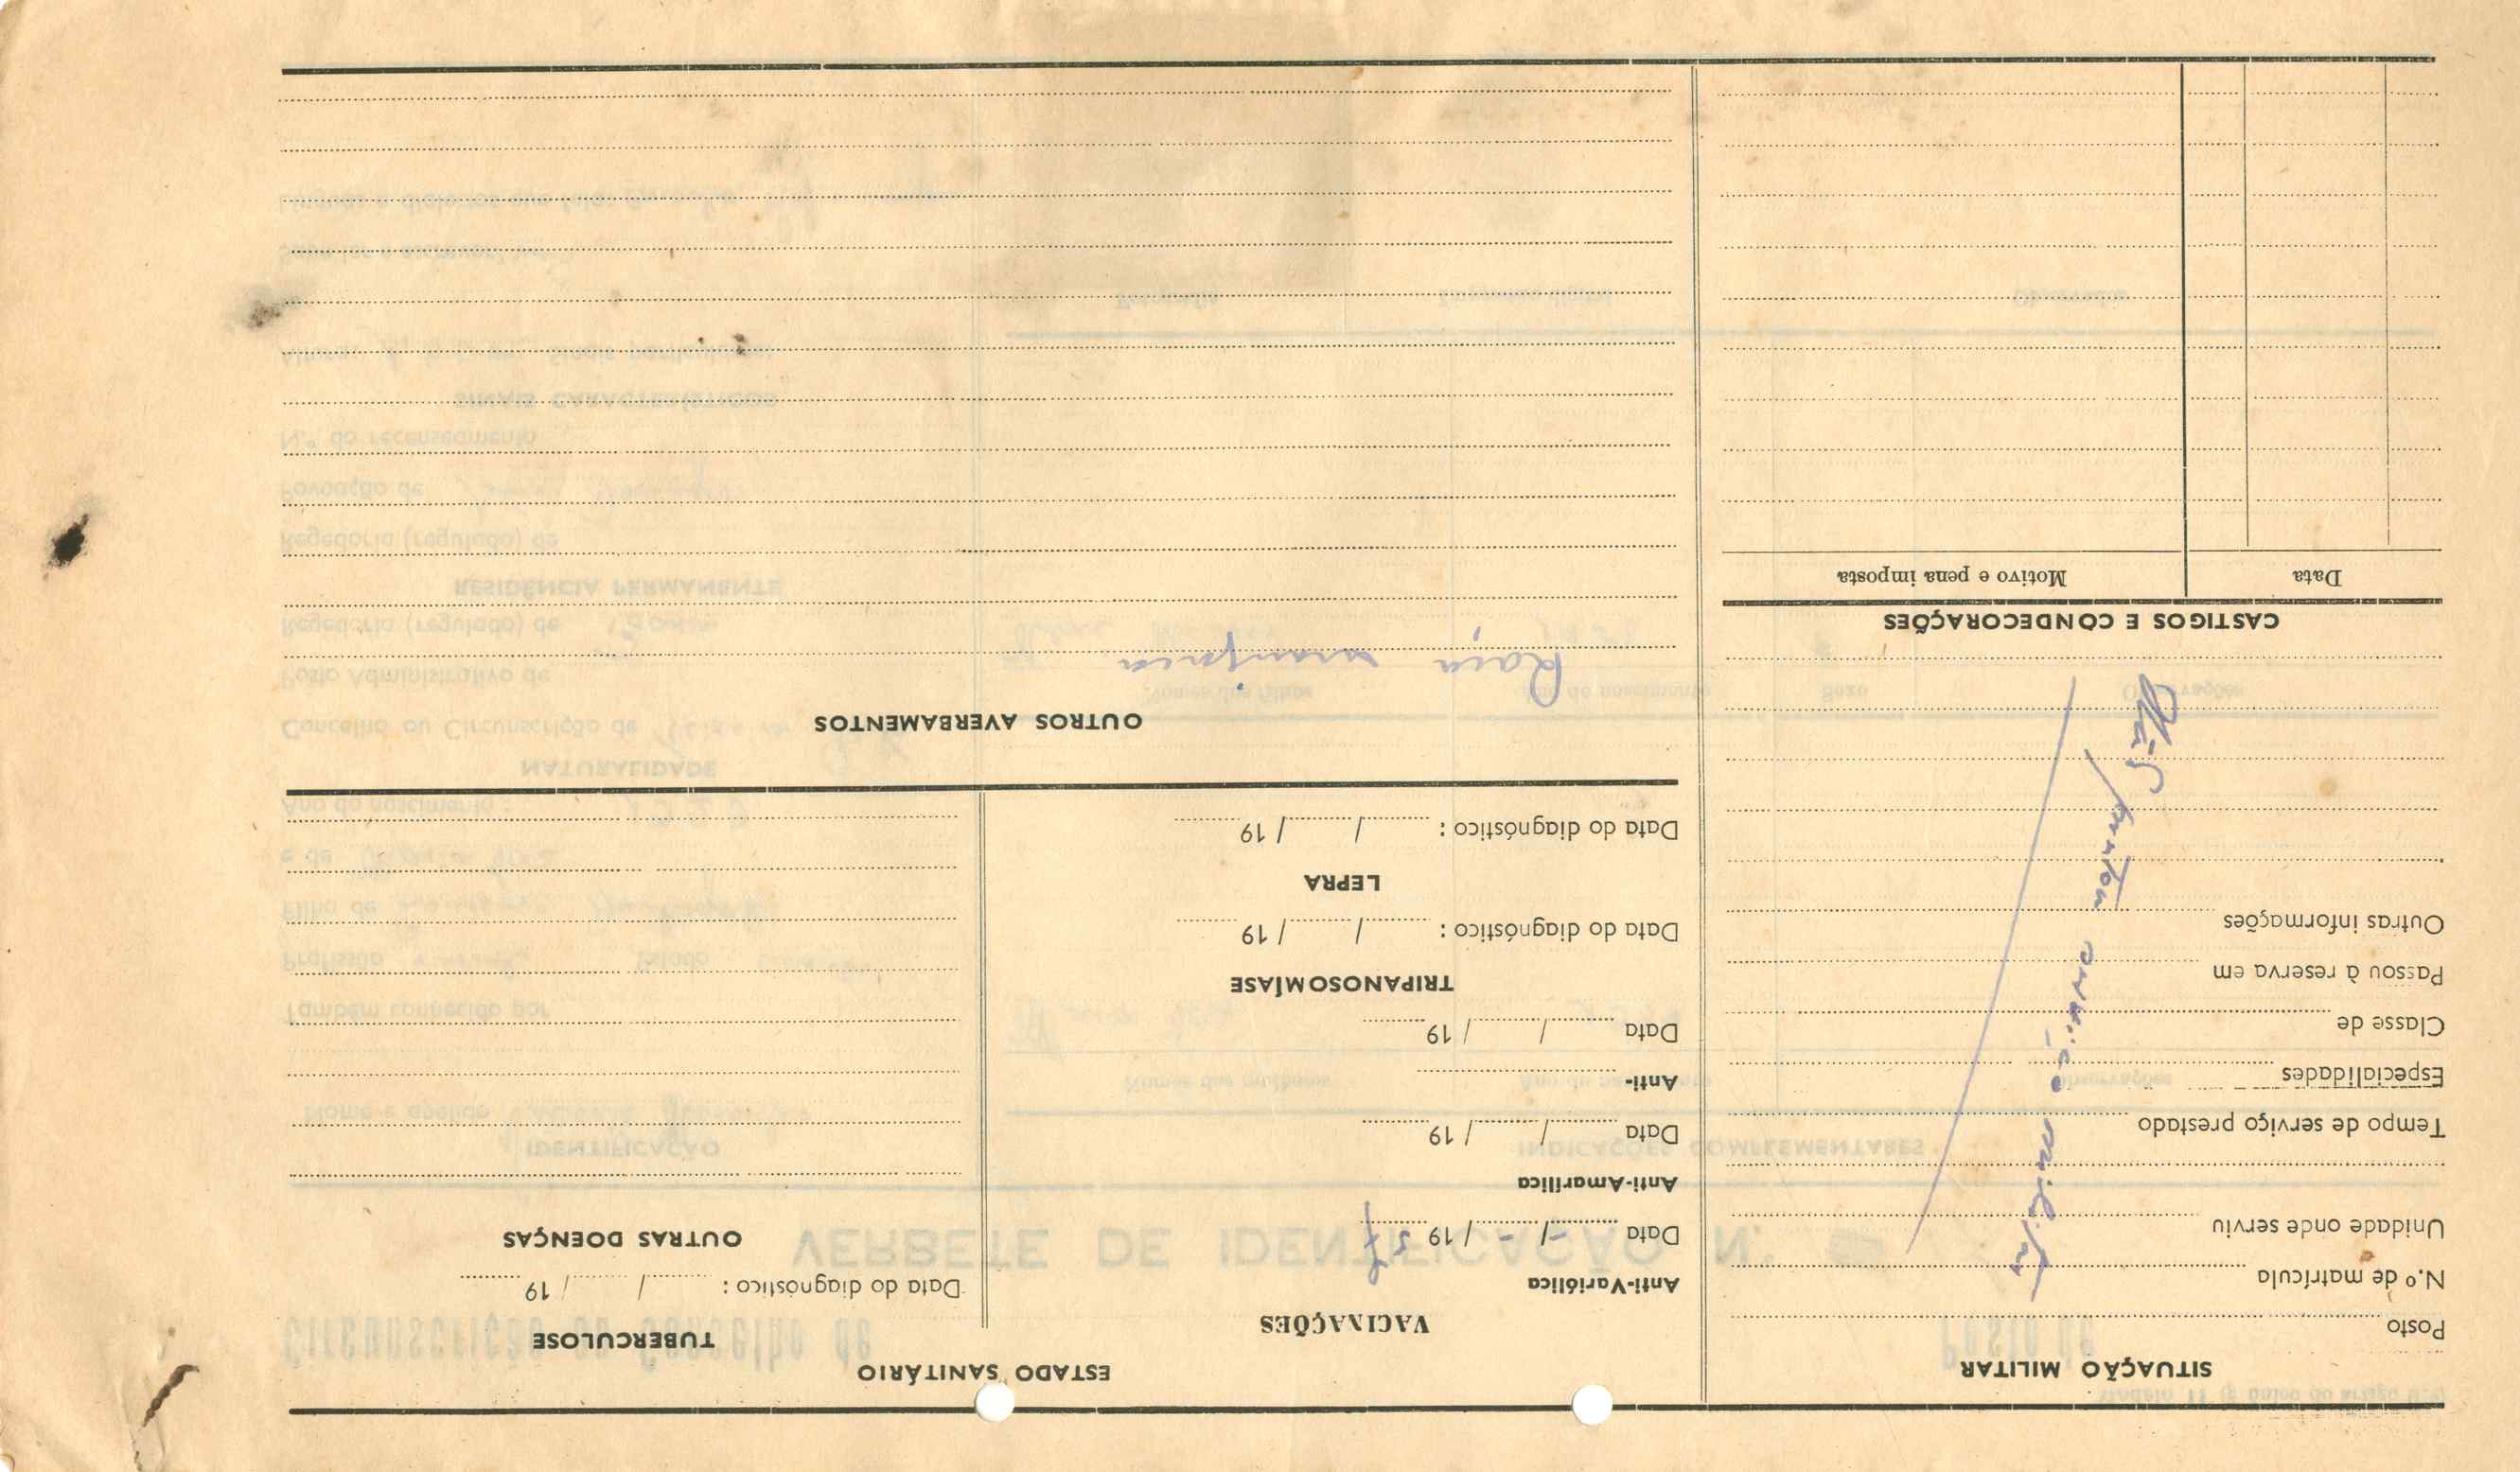 SITUAÇÃO MILITAR
Posto
N.º de matrícula
Unidade onde serviu
Tempo de serviço prestado
Especialidades
Classe de
Passou à reserva em
Outras informações
Não prestou serviço militar
CASTIGOS E CONDECORAÇÕES
Data Motivo e pena imposta
ESTADO SANITÁRIO
VACINAÇÕES
Anti-Variólica
Data - / - / 19 57
Anti-Amarílica
Data / / 19
Anti-
Data / / 19
TRIPANOSOMÍASE
Data do diagnóstico : / / 19
LEPRA
Data do diagnóstico : / / 19
TUBERCULOSE
Data do diagnóstico : / / 19
OUTRAS DOENÇAS
OUTROS AVERBAMENTOS
Raça